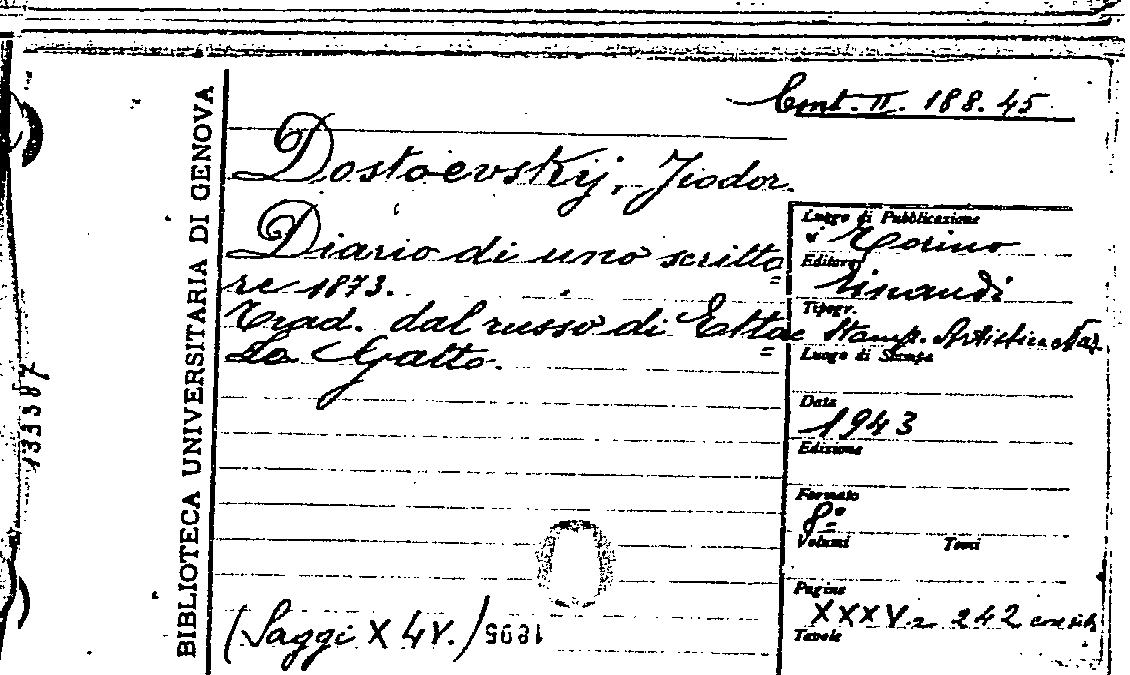 Cont. II. 188. 45
BIBLIOTECA UNIVERSITARIA DI GENOVA
133387
Dostoevskij, Fiodor.
Diario di uno scritto=
re 1873.
Trad. dal russo di Ettore
Lo Gatto.
(Saggi X LV.) 1895
Luogo di Pubblicazione
Torino
Editore
Einaudi
Tipogr.
Stamp. Artistica Naz.
Luogo di Stampa
Data
1943
Edizione
Formato
8º
Volumi Tomi
Pagine
XXXV- 242
Tavole